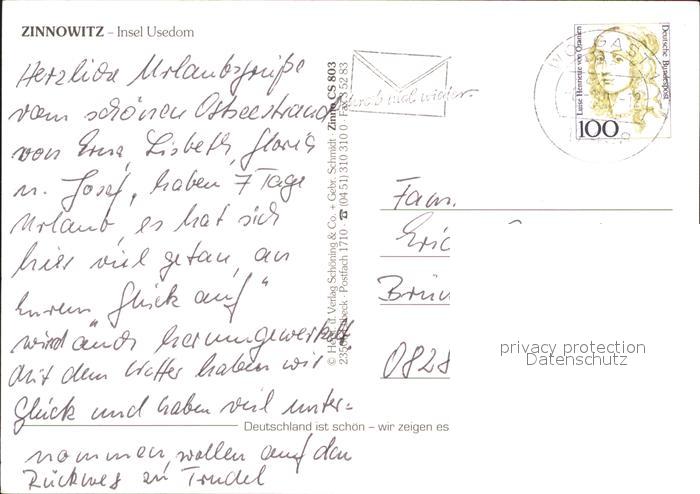 ZINNOWITZ – Insel Usedom
Herzliche Urlaubsgrüße
vom schönen Ostseestrand
von Erna, Lisbeth, Gloria
u. Josef, haben 7 Tage
Urlaub, es hat sich
hier viel getan, an
Eurem "Glück auf"
wird auch herumgewerkelt,
Mit dem Wetter haben wir
Glück und haben viel unter-
nommen, wollen auf den
Rückweg zu Trudel
© Herst. u. Verlag Schöning & Co. + Gebr. Schmidt · Zinno CS 803
Lübeck · Postfach 1710 · ☎ (04 51) 310 310 0 · Fax 3 52 83
Schreib mal wieder.
WOLGAST
Luise Henriette von Oranien
Deutsche Bundespost
100
Fam.
Eric
Brün
0828
privacy protection
Datenschutz
Deutschland ist schön – wir zeigen es